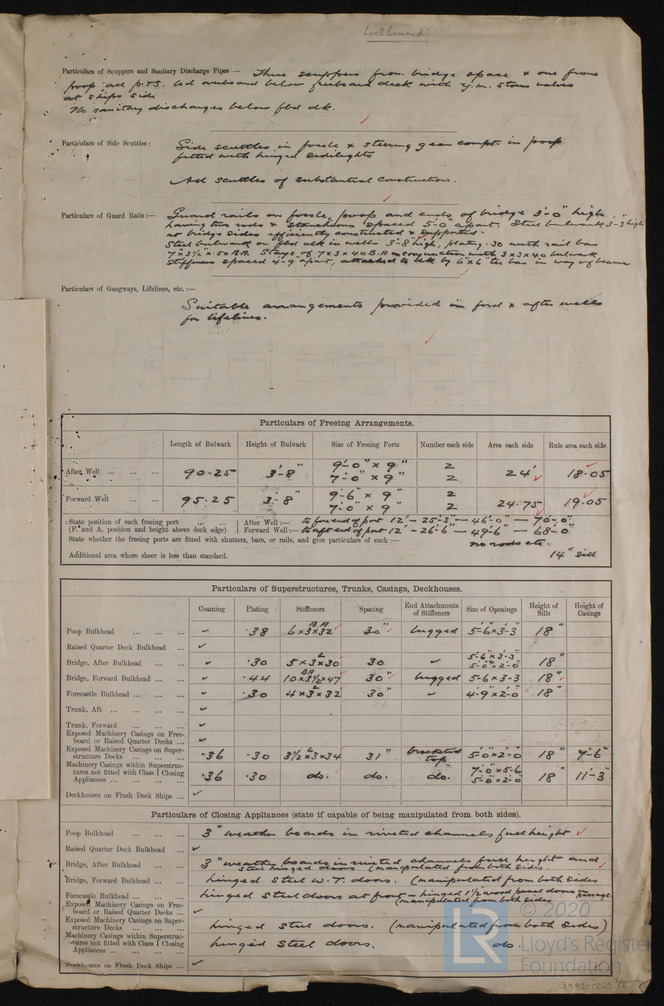 Particulars of Scuppers and Sanitary Discharge Pipes — Three scuppers from bridge space & one from
poop and led overboard below freeboard deck with storm valves
at ships side
No sanitary discharges below fbd dk.
Particulars of Side Scuttles: Side scuttles in focsle & steering gear compt. in poop
fitted with hinged deadlights
All scuttles of substantial construction.
Particulars of Guard Rails :— Guard rails on focsle, poop and ends of bridge 3'-0" high,
having two rods & stanchions spaced 5-0 apart. Steel bulwark 3-3" high
at bridge sides efficiently constructed & supported.
Steel bulwark on fbd dk in wells 3'-8" high, plating .30 with rail bar
7 x 3½" x .50 B.A. Stays of 7 x 3 x 40 B.A in conjunction with 3 x 3 x 40 bulwark
stiffeners spaced 4-9" apart, attached to dk by 6 x 6 tee bar in way of beams
Particulars of Gangways, Lifelines, etc. :—
Suitable arrangements provided in ford & after wells
for lifelines.
Particulars of Freeing Arrangements.
Length of Bulwark Height of Bulwark Size of Freeing Ports Number each side Area each side Rule area each side
After Well ... ... ... 90.25 3'-8" 9'-0" x 9" 2 24' 18.05
7'-0" x 9" 2
Forward Well ... ... 95.25 3'-8" 9'-6" x 9" 2 24.75 19.05
7'-0" x 9" 2
State position of each freeing port ... ... After Well :— to for end of port 12' — 25'-3" — 46'-0" — 70'-0"
(F. and A. position and height above deck edge) Forward Well :— to aft end of port 12' — 26'-6" — 49'-6" — 68'-0"
State whether the freeing ports are fitted with shutters, bars, or rails, and give particulars of such :— no rods etc.
Additional area where sheer is less than standard. 14" Sill
Particulars of Superstructures, Trunks, Casings, Deckhouses.
Coaming Plating Stiffeners Spacing End Attachments of Stiffeners Size of Openings Height of Sills Height of Casings
Poop Bulkhead ... ... ... .38 B.A 6 x 3 x 32 30" lugged 5'-6" x 3'-3" 18"
Raised Quarter Deck Bulkhead ...
Bridge, After Bulkhead ... ... .30 5 x 3 x 30 30 5'-6" x 3'-3" 18"
5'-0" x 2'-0"
Bridge, Forward Bulkhead ... ... .44 B.A 10 x 3½ x 47 30" lugged 5-6 x 3-3 18"
Forecastle Bulkhead ... ... .30 4 x 3 x 32 30" 4'-9" x 2'-0" 18"
Trunk, Aft ... ... ...
Trunk, Forward ... ... ...
Exposed Machinery Casings on Free-
board or Raised Quarter Decks ...
Exposed Machinery Casings on Super-
structure Decks ... ... ... .36 .30 3½ x 3 x 34 31" bracketed top 5'-0" x 2'-0" 18" 7'-6"
Machinery Casings within Superstruc-
tures not fitted with Class I Closing
Appliances ... ... ... .36 .30 do. do. do. 7'-0" x 5-6 18" 11'-3"
5'-0" x 2-0
Deckhouses on Flush Deck Ships ...
Particulars of Closing Appliances (state if capable of being manipulated from both sides).
Poop Bulkhead ... ... ... 3" weather boards in riveted channels full height
Raised Quarter Deck Bulkhead ...
Bridge, After Bulkhead ... ... 3" weather boards in riveted channels full height and
steel hinged doors (manipulated from both sides.
Bridge, Forward Bulkhead ... ... hinged steel W.T. doors. (manipulated from both sides
Forecastle Bulkhead ... ... hinged steel doors at front — hinged 1½ wood panel doors in passage
(manipulated from both sides
Exposed Machinery Casings on Free-
board or Raised Quarter Decks ...
Exposed Machinery Casings on Super-
structure Decks ... ... ... hinged steel doors. (manipulated from both sides)
Machinery Casings within Superstruc-
tures not fitted with Class I Closing
Appliances ... ... ... hinged steel doors. do.
Deckhouses on Flush Deck Ships ...
LR
© 2020
Lloyd's Register
Foundation